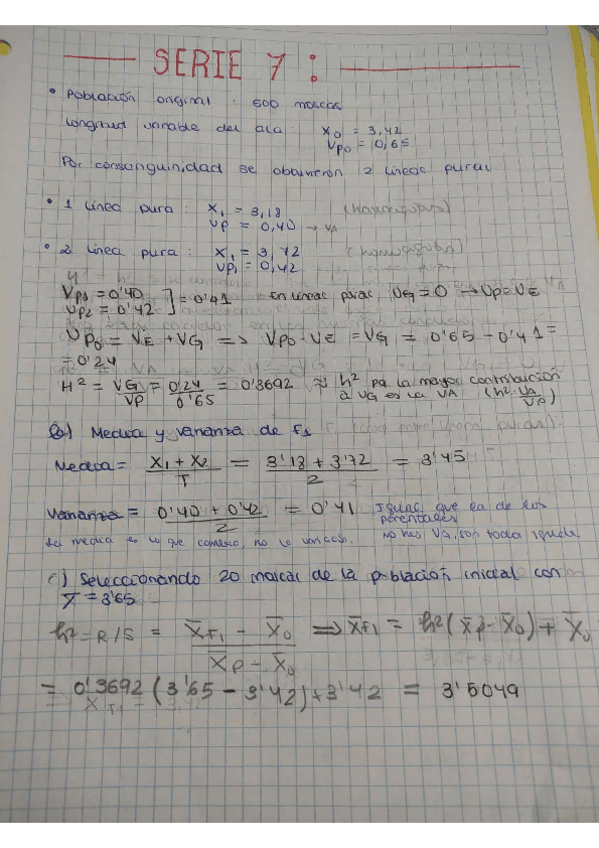 SERIE 7:
• Población original : 600 moscas
Longitud variable del ala: X0 = 3,42
VP0 = 0,65
Por consanguinidad se obtuvieron 2 líneas puras
• 1 línea pura : X1 = 3,18 (homocigotos)
VP = 0,40 → VA
• 2 línea pura : X1 = 3,72 (homocigotos)
VP1 = 0,42
VP1 = 0'40
VP2 = 0'42 ] = 0'41 En líneas puras VG = 0 → VP = VE
VP0 = VE + VG => VP0 - VE = VG = 0'65 - 0'41 =
= 0'24
H² = VG/VP = 0'24/0'65 = 0'3692 ≈ h² pq la mayor contribución
a VG es la VA (h² = VA/VP)
b) Media y varianza de F1
Media = X1 + X2 / T = 3'18 + 3'72 / 2 = 3'45
Varianza = 0'40 + 0'42 / 2 = 0'41 Igual que la de los
parentales
la media es lo que cambia, no la variación. no hay VG, son todos iguales
c) Seleccionando 20 moscas de la población inicial con
X̄ = 3'65
h² = R/S = X̄F1 - X̄0 / X̄P - X̄0 => X̄F1 = h² (X̄P - X̄0) + X̄0
= 0'3692 (3'65 - 3'42) + 3'42 = 3'5049